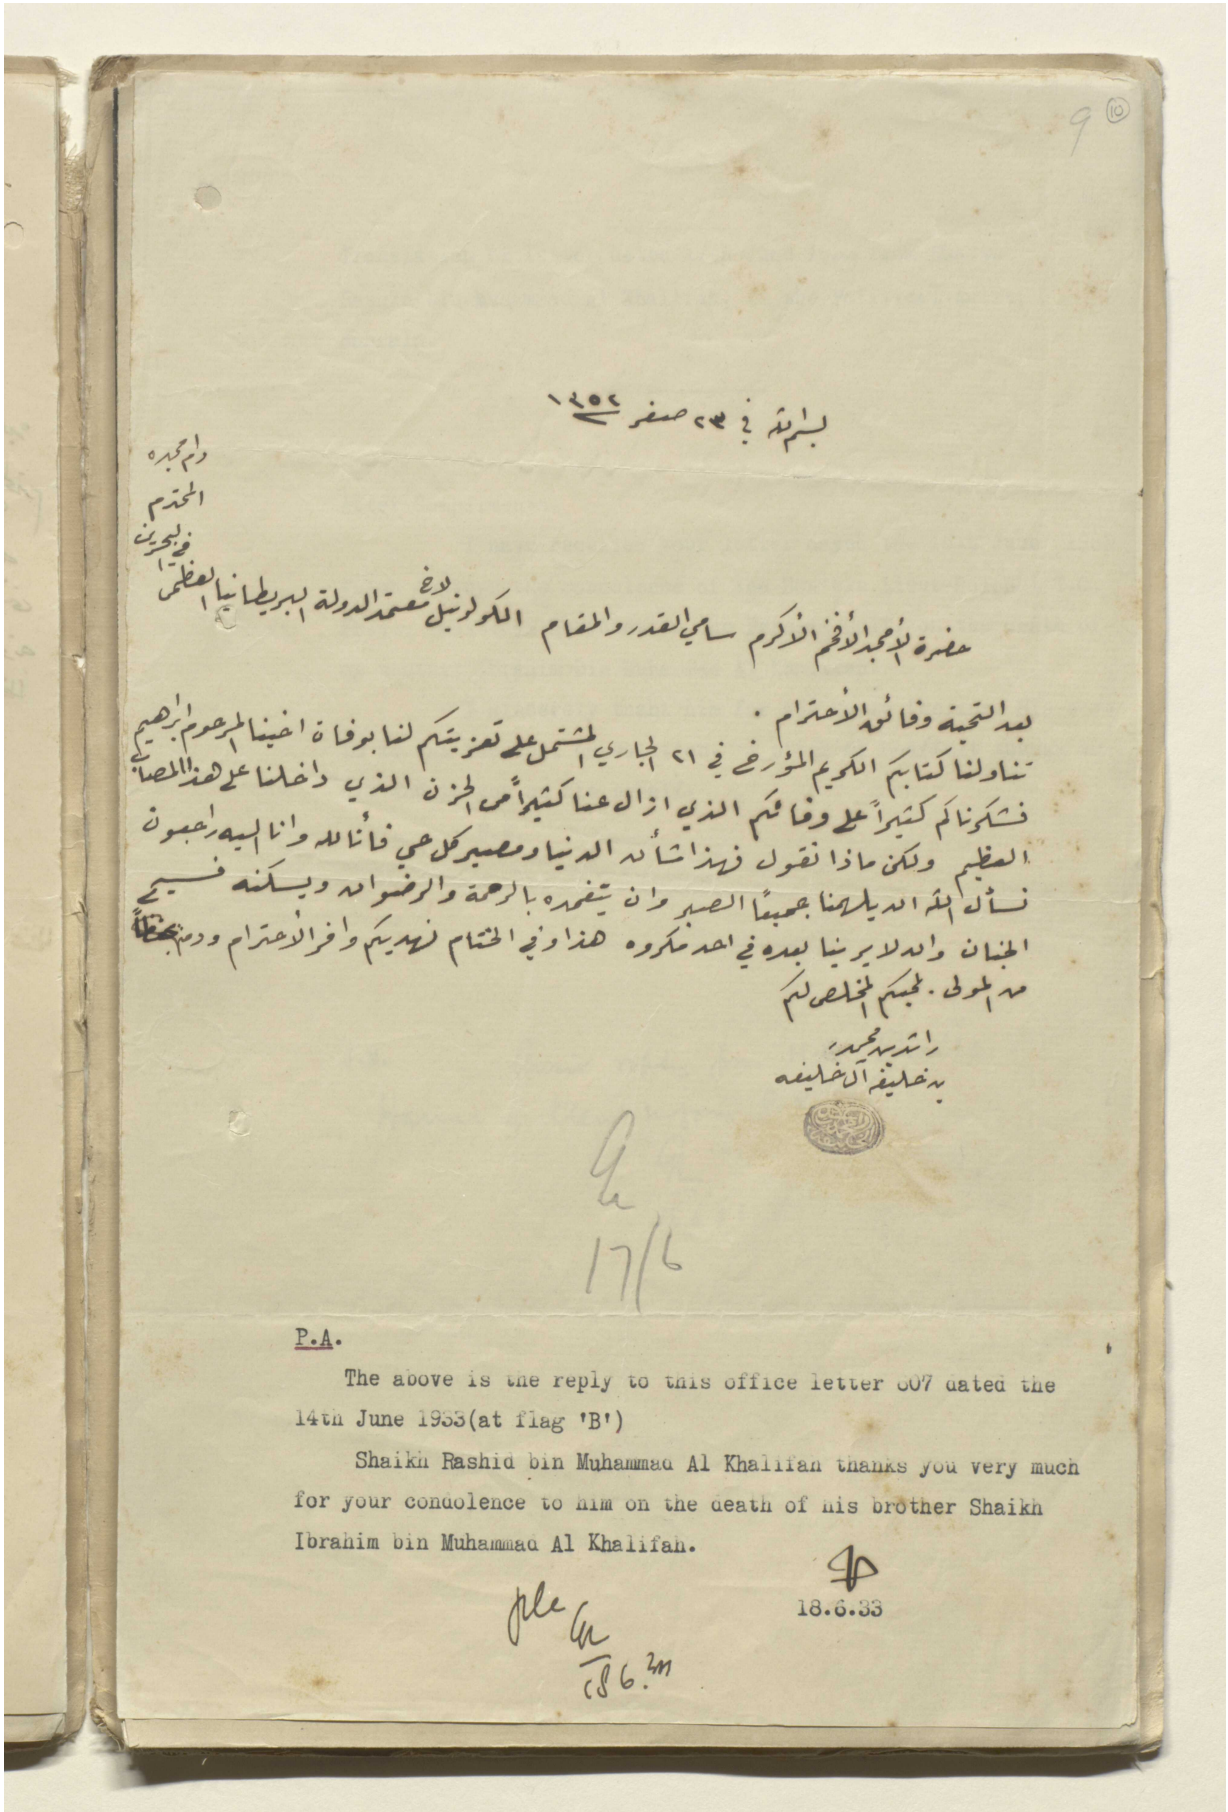 9 10
بسم الله في ٢٣ صفر ١٣٥٢
دام مجده
المحترم
في البحرين
حضرة الأمجد الأفخم الأكرم سامي القدر والمقام الكولونيل لاخ معتمد الدولة البريطانيا العظمى
بعد التحية وفائق الأحترام .
تناولنا كتابكم الكريم المؤرخ في ٢١ الجاري المشتمل على تعزيتكم لنا بوفات اخينا المرحوم ابراهيم
فشكرناكم كثيراً على وفائكم الذي ازال عنا كثيراً من الحزن الذي داخلنا على هذا المصاب
العظيم ولكن ماذا نقول فهذا شأن الدنيا ومصير كل حي فأنا لله وانا اليه راجعون
نسأل الله ان يلهمنا جميعًا الصبر وان يتغمده بالرحمة والرضوان ويسكنه فسيح
الجنان وان لا يرينا بعده في احد مكروه هذا وفي الختام نهديكم وافر الأحترام ودمتم
من المولى . محبكم المخلص لكم
راشد بن محمد
بن خليفه آل خليفه
17/6
P.A.
The above is the reply to this office letter 807 dated the
14th June 1933(at flag 'B')
Shaikh Rashid bin Muhammad Al Khalifah thanks you very much
for your condolence to him on the death of his brother Shaikh
Ibrahim bin Muhammad Al Khalifah.
18.6.33
file
186.